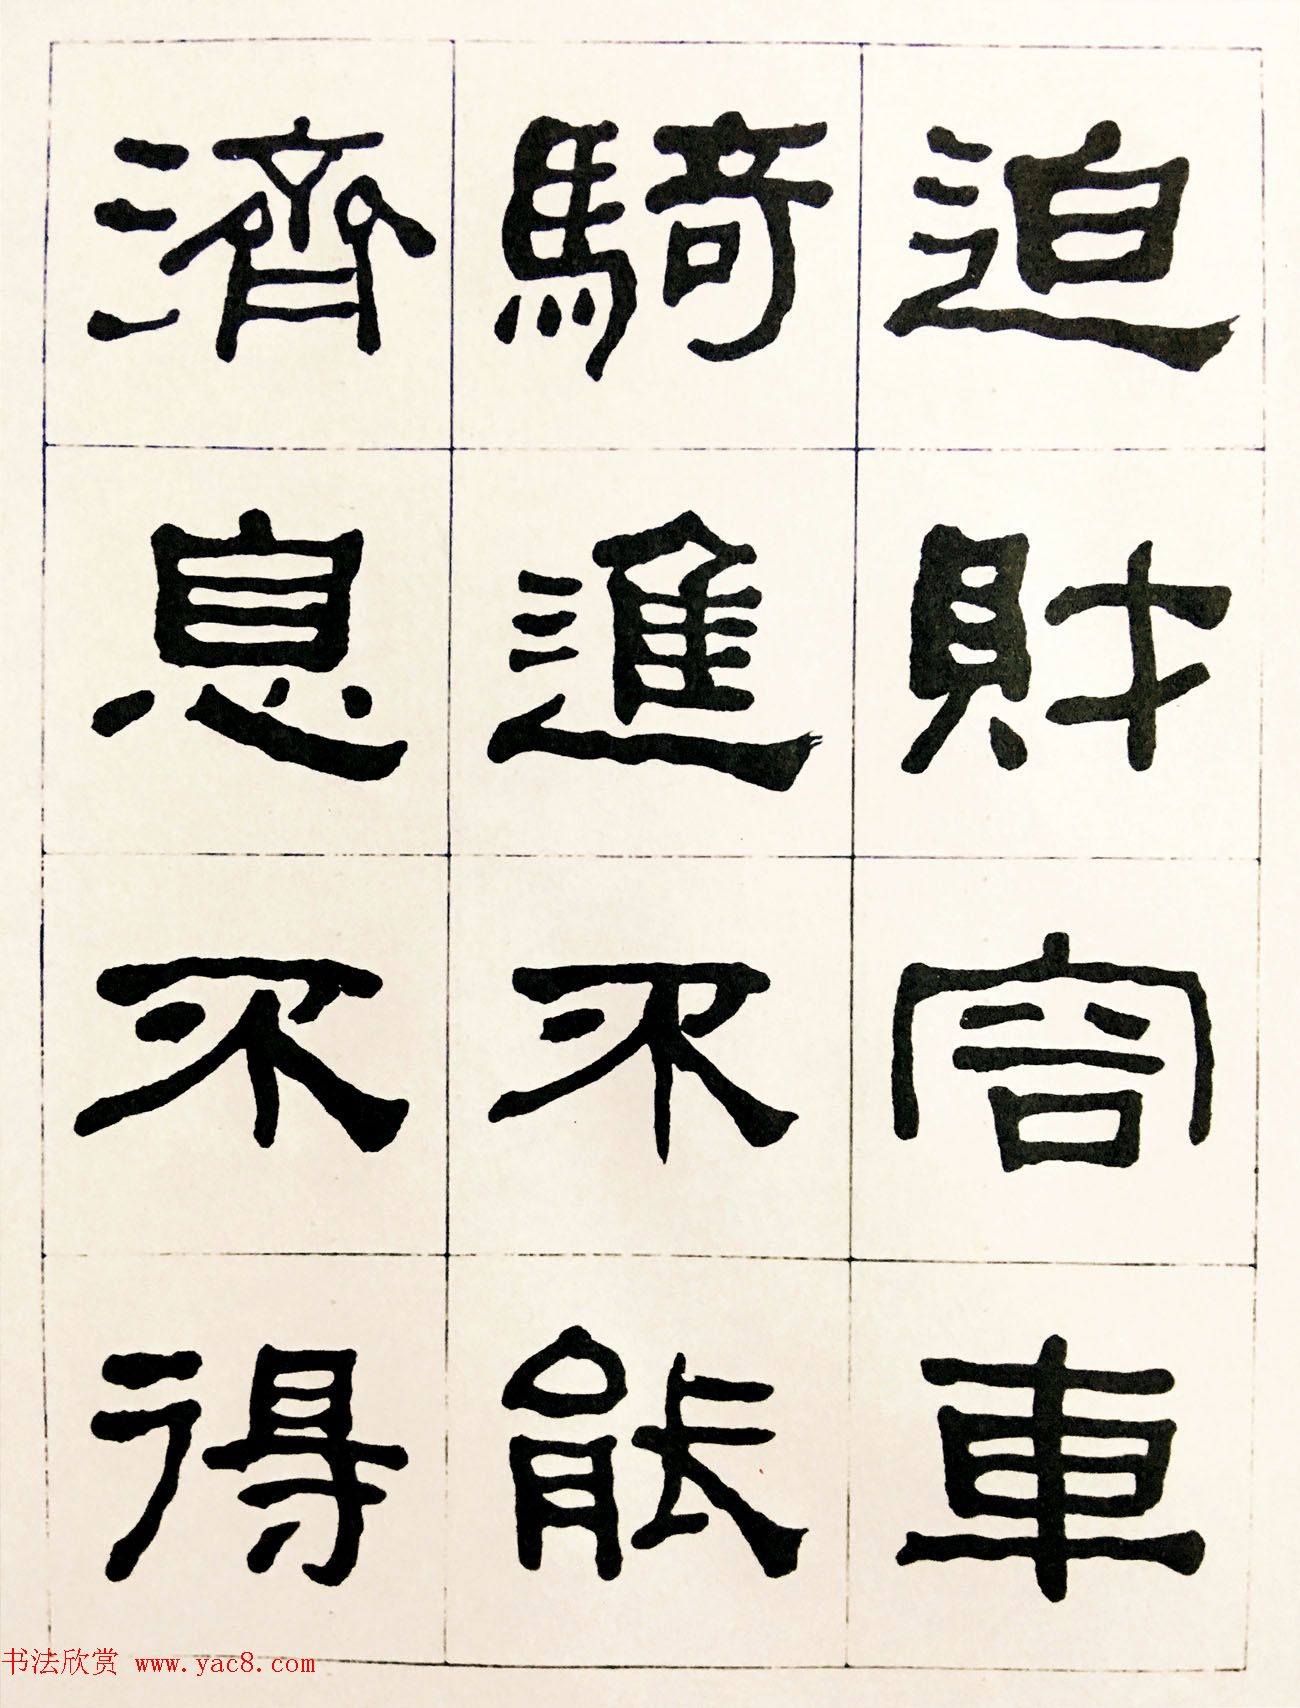 迫財容車
騎進不能
濟息不得
书法欣赏 www.yac8.com